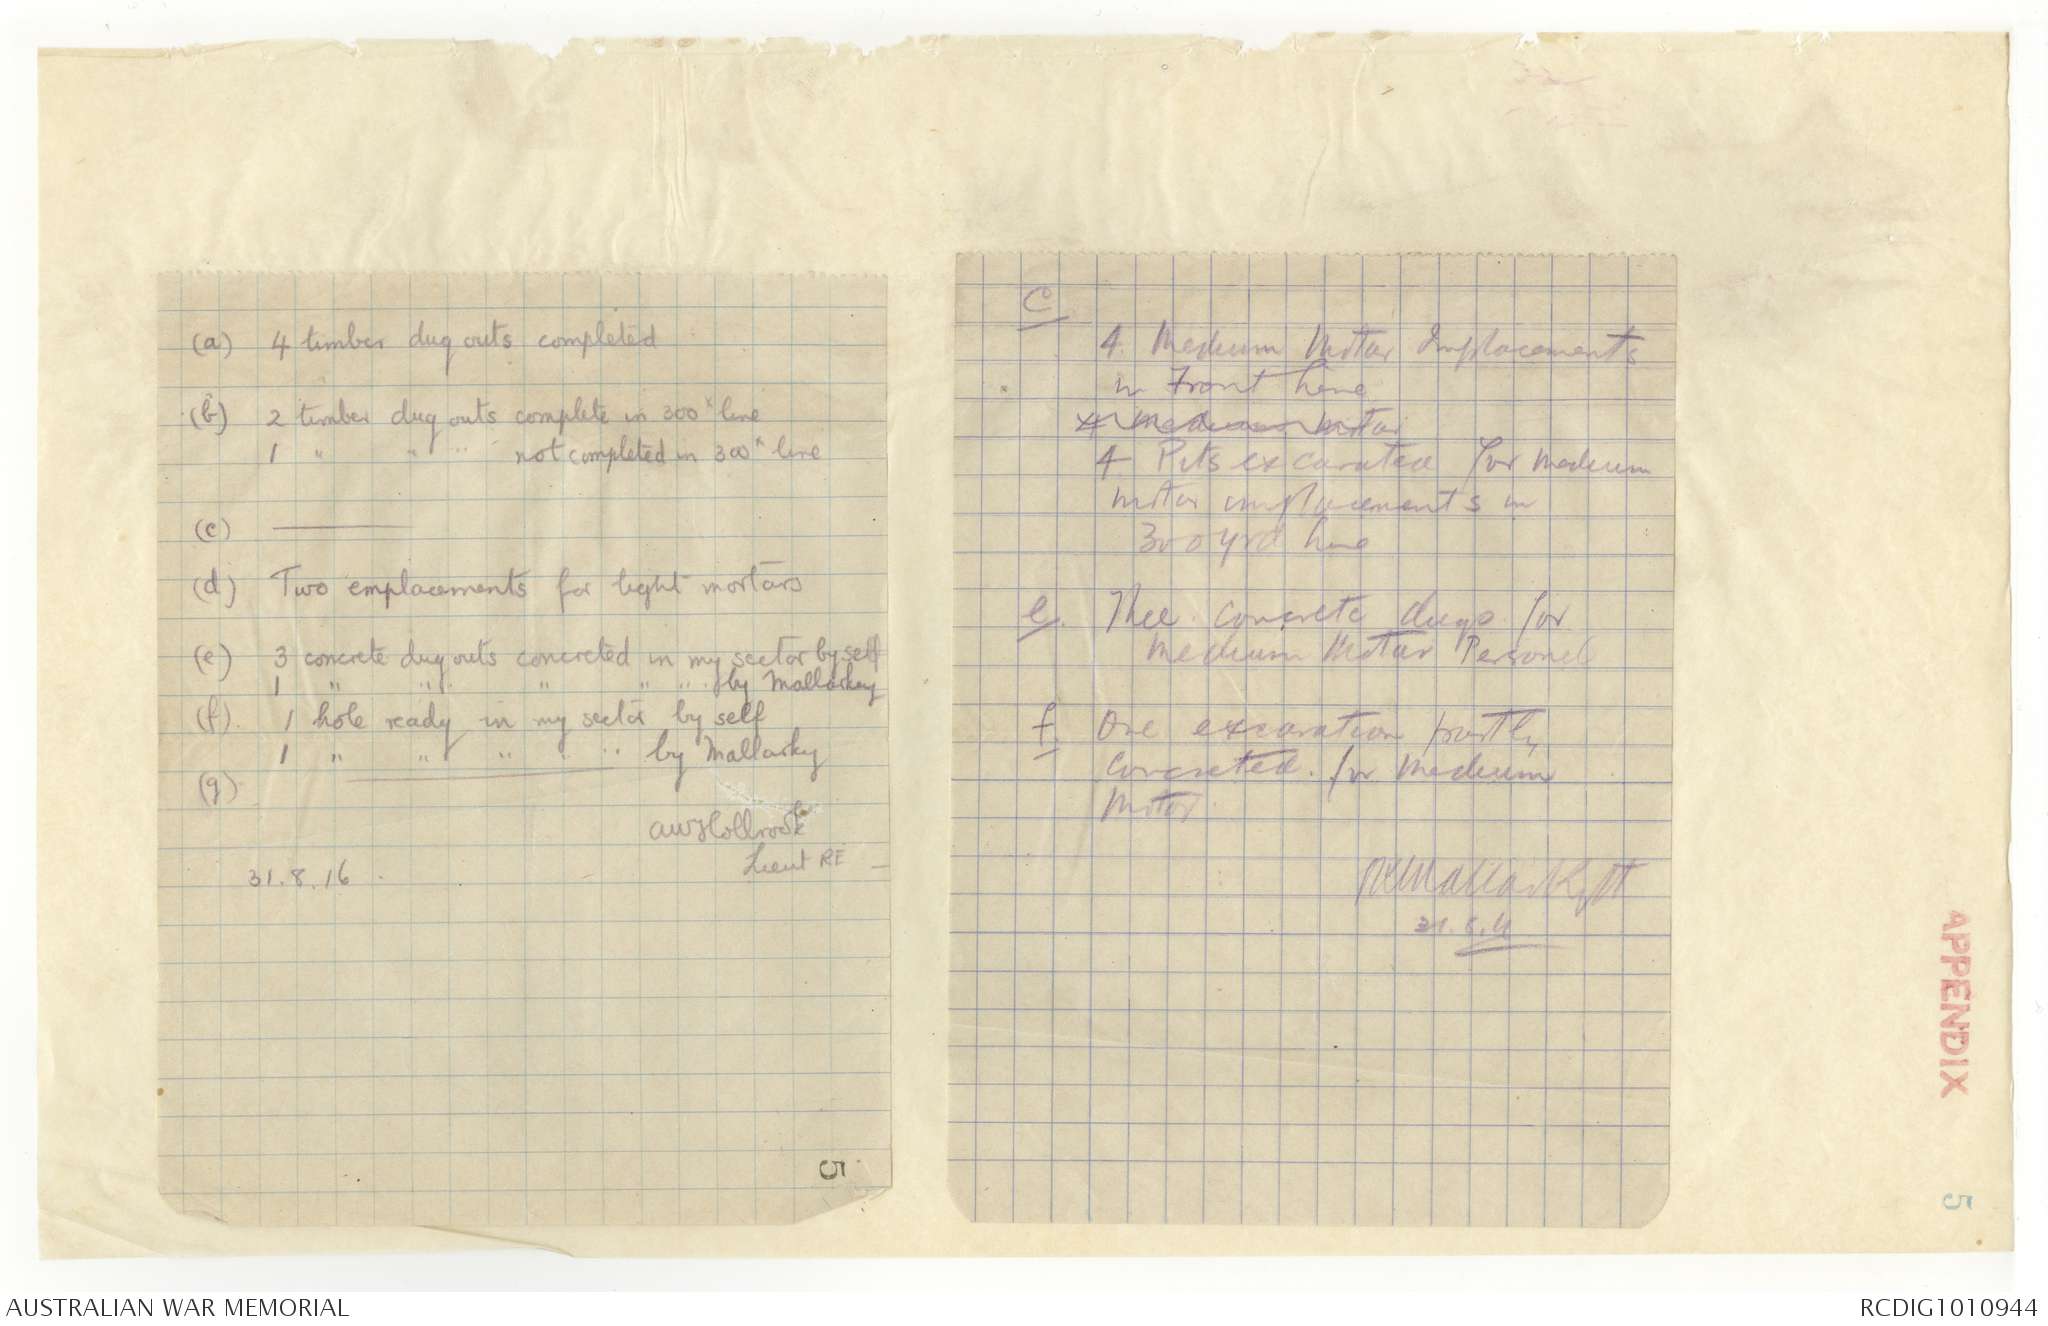 (a) 4 timber dug outs completed
(b) 2 timber dug outs complete in 300ˣ line
1 " " " not completed in 300ˣ line
(c) ———
(d) Two emplacements for light mortars
(e) 3 concrete dug outs concreted in my sector by self
1 " " " " " by Mallarkey
(f). 1 hole ready in my sector by self
1 " " " " by Mallarky
(g)
AWHolbrook
Lieut RE
31.8.16
5
C
4 Medium Motar Implacements
in Front Line
4 Medium Motar
4 Pits excavated for medium
motar implacements in
300 yrd line
e. Thee concrete dugs for
Medium Motar Personel
f. One excavation partly
concreted for medium
motor
Mallarky Lt
31.8.16
APPENDIX
5
AUSTRALIAN WAR MEMORIAL
RCDIG1010944